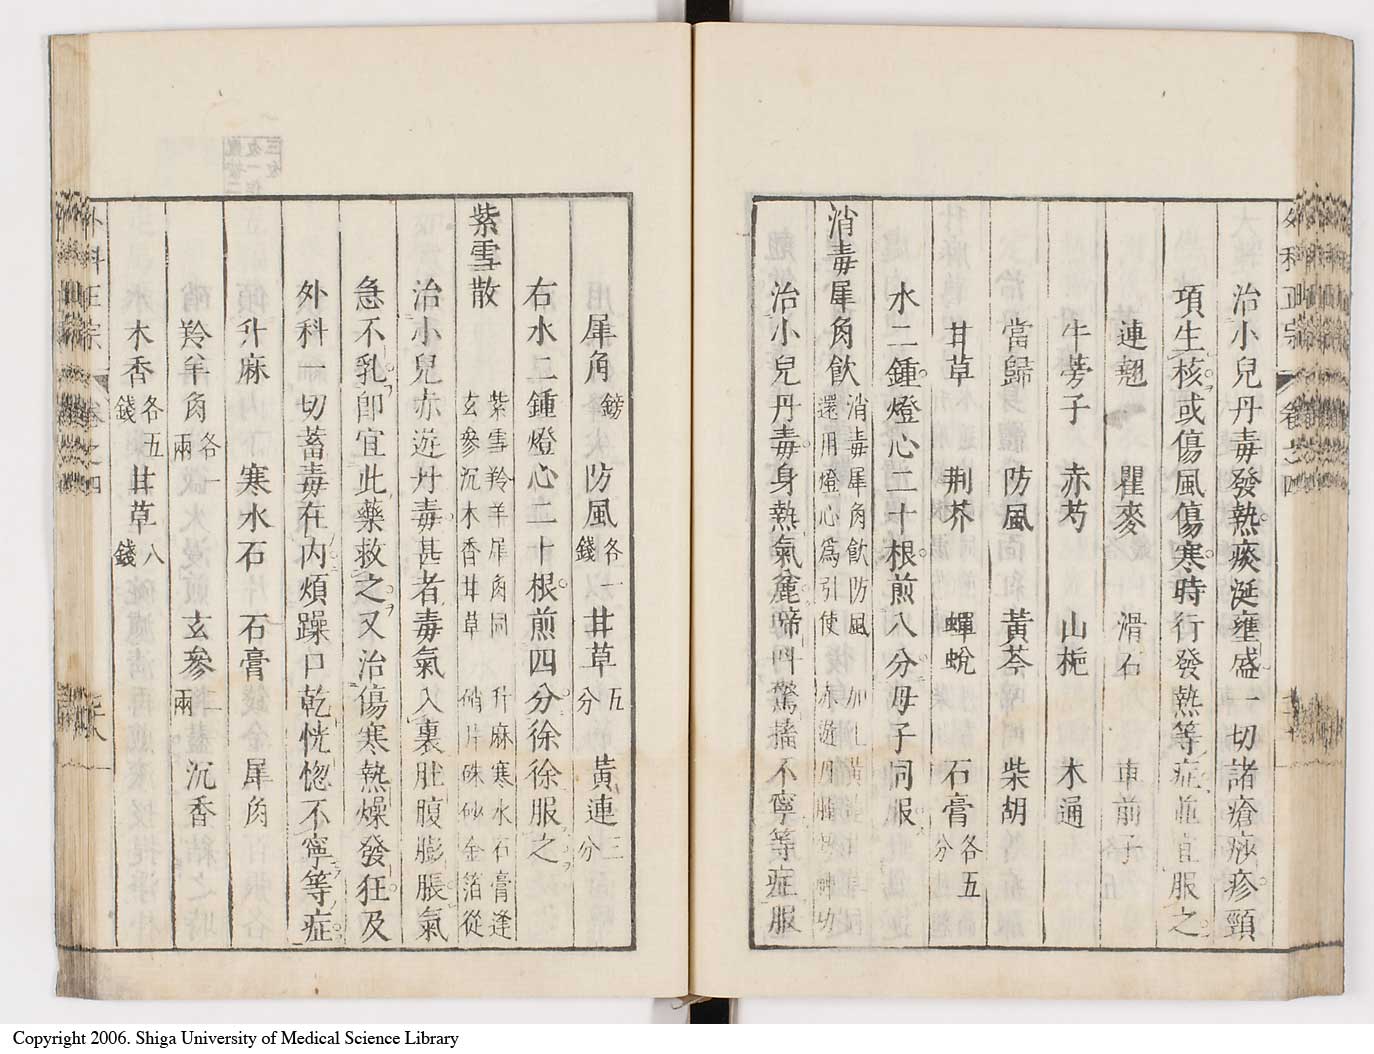 外科正宗 卷之四
治小兒丹毒發熱痰涎壅盛一切諸瘡痧疹頸
項生核或傷風傷寒時行發熱等症並宜服之
連翹 瞿麥 滑石 車前子
牛蒡子 赤芍 山梔 木通
當歸 防風 黃芩 柴胡
甘草 荆芥 蟬蛻 石膏各五分
水二鍾燈心二十根煎八分母子同服
消毒犀角飲 消毒犀角飲防風
還用燈心為引使 赤遊
治小兒丹毒身熱氣麄啼叫驚搐不寧等症服
犀角鎊 防風各一錢 甘草五分 黃連三分
右水二鍾燈心二十根煎四分徐徐服之
紫雪散 紫雪羚羊犀角同 升麻寒水石膏逢
玄參沉木香甘草 硝片硃砂金箔從
治小兒赤遊丹毒甚者毒氣入裏肚腹膨脹氣
急不乳即宜此藥救之又治傷寒熱燥發狂及
外科一切蓄毒在内煩躁口乾恍惚不寧等症
升麻 寒水石 石膏 犀角
羚羊角各一兩 玄參二兩 沉香
木香各五錢 甘草八錢
外科正宗 卷之四